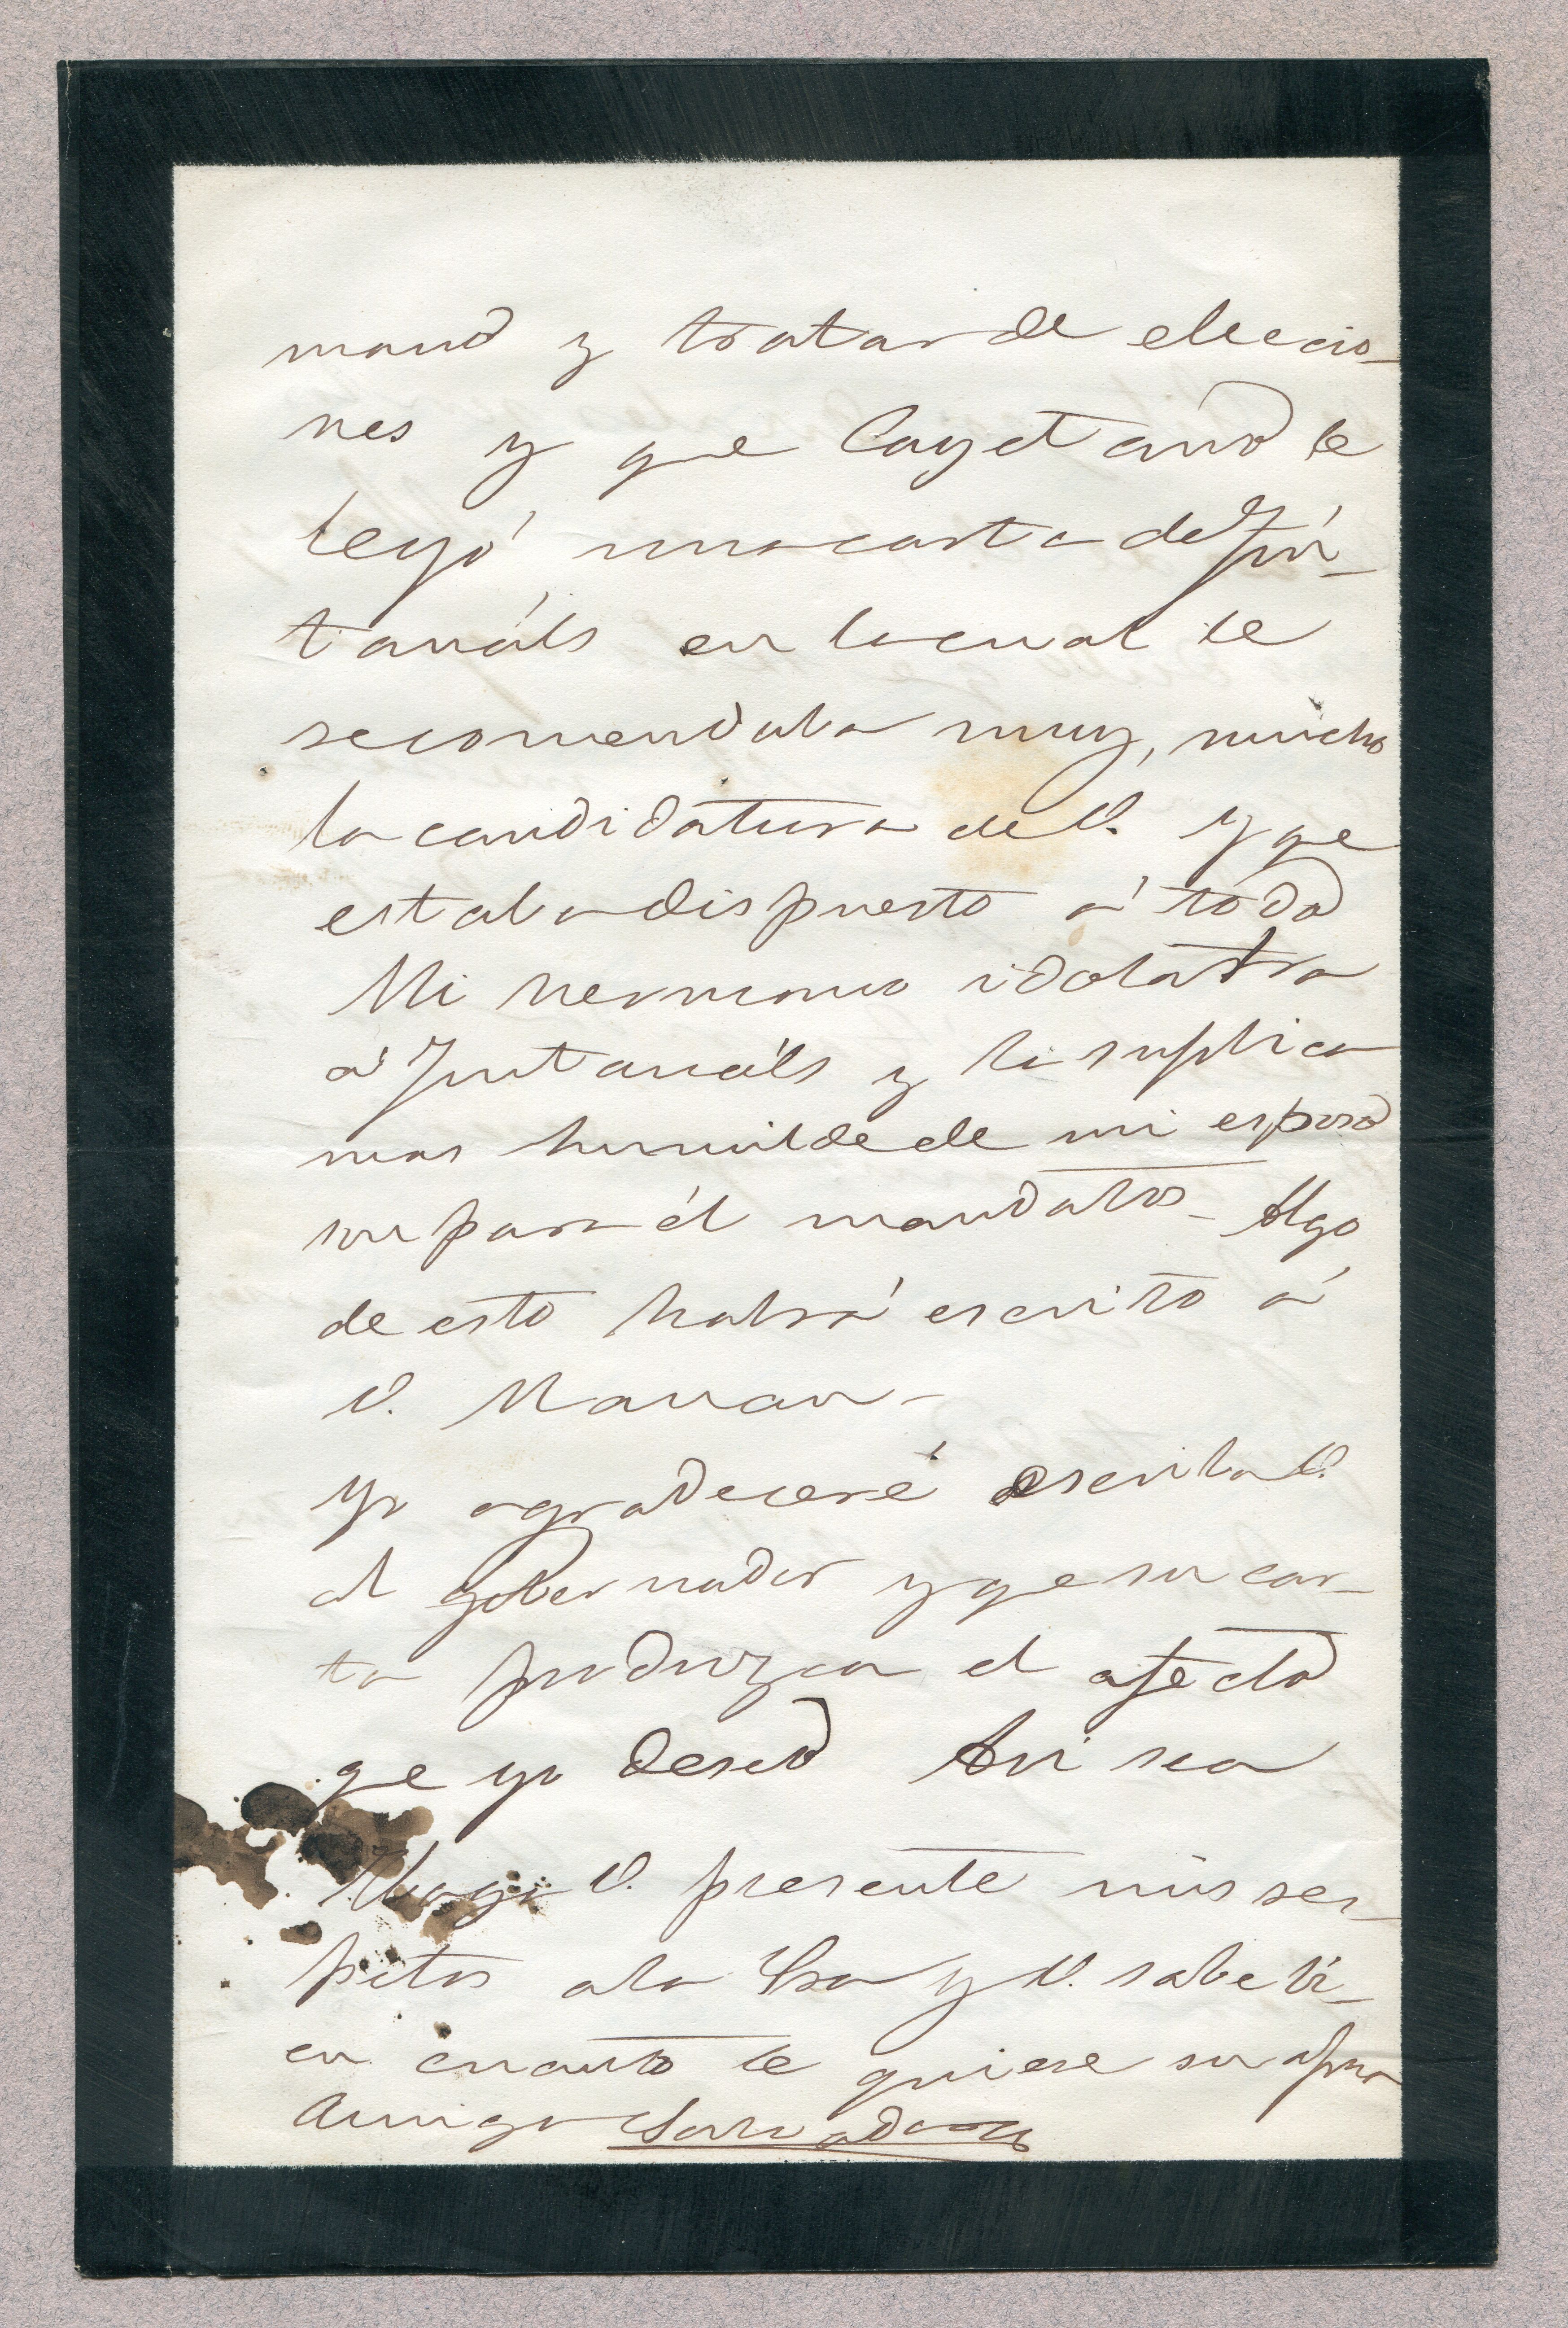 mano y tratar de eleccio-
nes y qe Cayetano le
leyó una carta de Fon-
tanáls en la cual le
recomendaba muy, mucho
la candidatura de V. y qe
estaba dispuesto á todo
Mi hermano idolatra
á Fontanáls y la suplica
mas humilde de mi esposo
son para él mandatos - Algo
de esto habrá escrito á
V. Manan-
Yo agradeceré escriba V.
al gobernador y qe su car-
ta produzca el afecto
qe yo deseo Asi sea
Haga V. presente mis res-
petos a la Sra y V. sabe bi-
en cuanto le quiere su afmo
Amigo Salvador